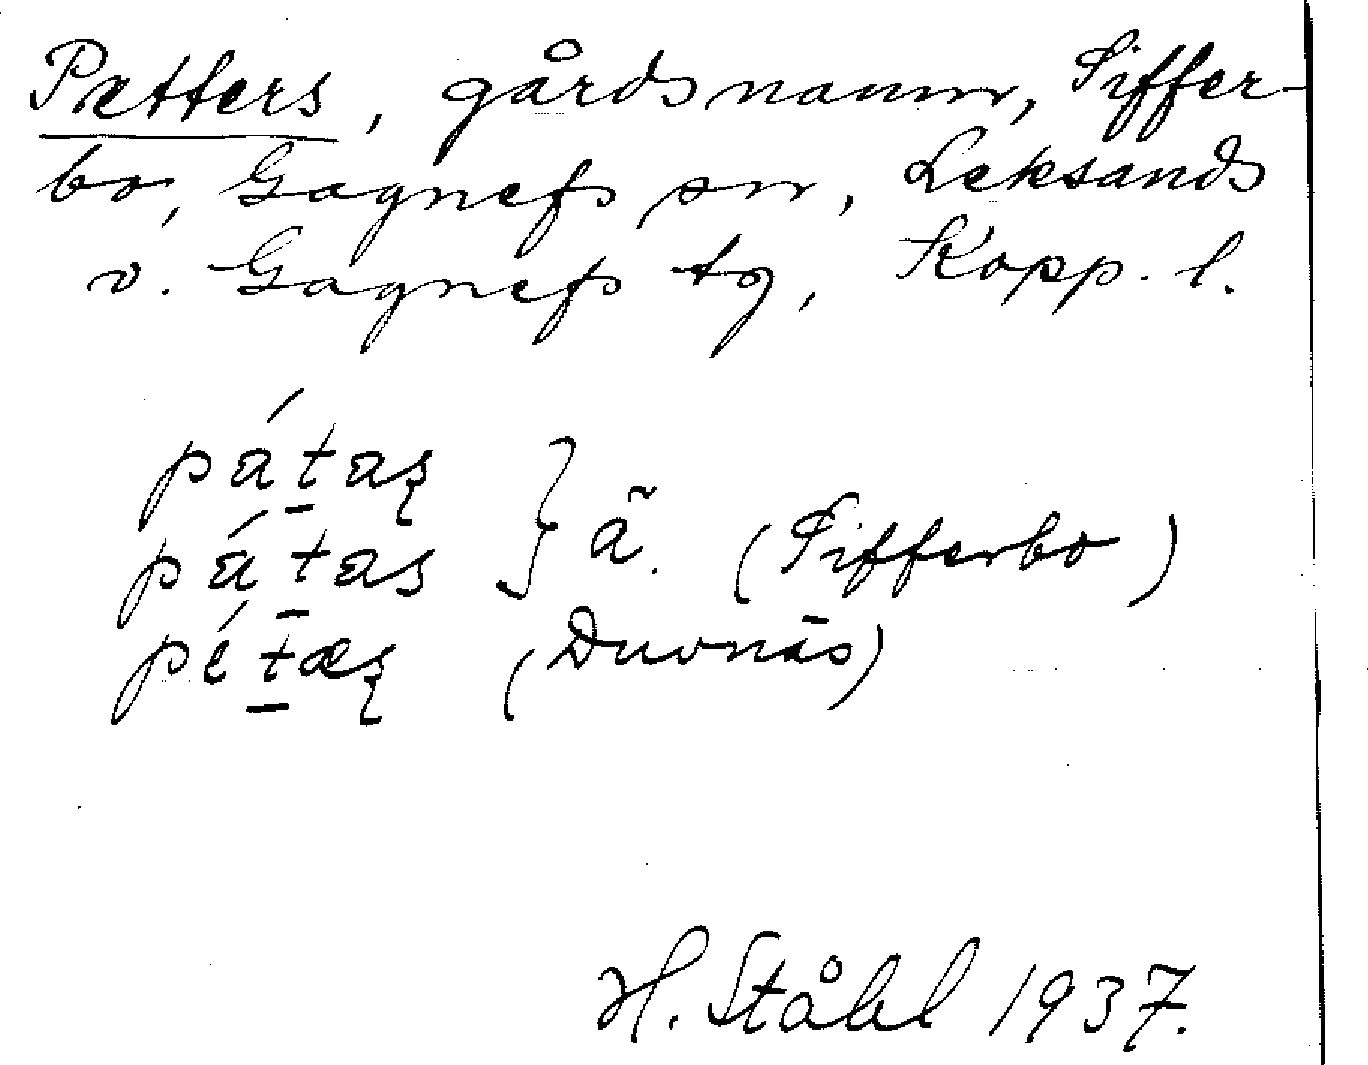 Pætters, gårdsnamn, Siffer-
bo, Gagnefs sn, Leksands
o. Gagnefs tg, Kopp. l.
pátaș
pátas } ã. (Sifferbo)
pétæș (Duvnäs)
H. Ståhl 1937.